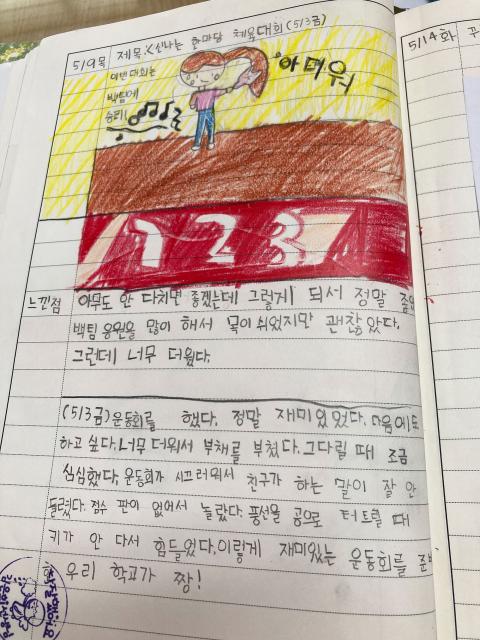 5/9목 제목: <신나는 한마당 체육대회(5/3금)
이번 대회는
백팀에
승리!
아 더워
1 2 3
느낀점 아무도 안 다치면 좋겠는데 그렇게 되서 정말
백팀 응원을 많이 해서 목이 쉬었지만 괜찮았다.
그런데 너무 더웠다.
(5/3금)운동회를 했다. 정말 재미있었다. 다음에도
하고 싶다. 너무 더워서 부채를 부쳤다. 그다릴 때 조금
심심했다. 운동회가 시끄러워서 친구가 하는 말이 잘 안
들렸다. 점수 판이 없어서 놀랐다. 풍선을 공으로 터트릴 때
키가 안 다서 힘들었다. 이렇게 재미있는 운동회를
우리 학교가 짱!
5/14화